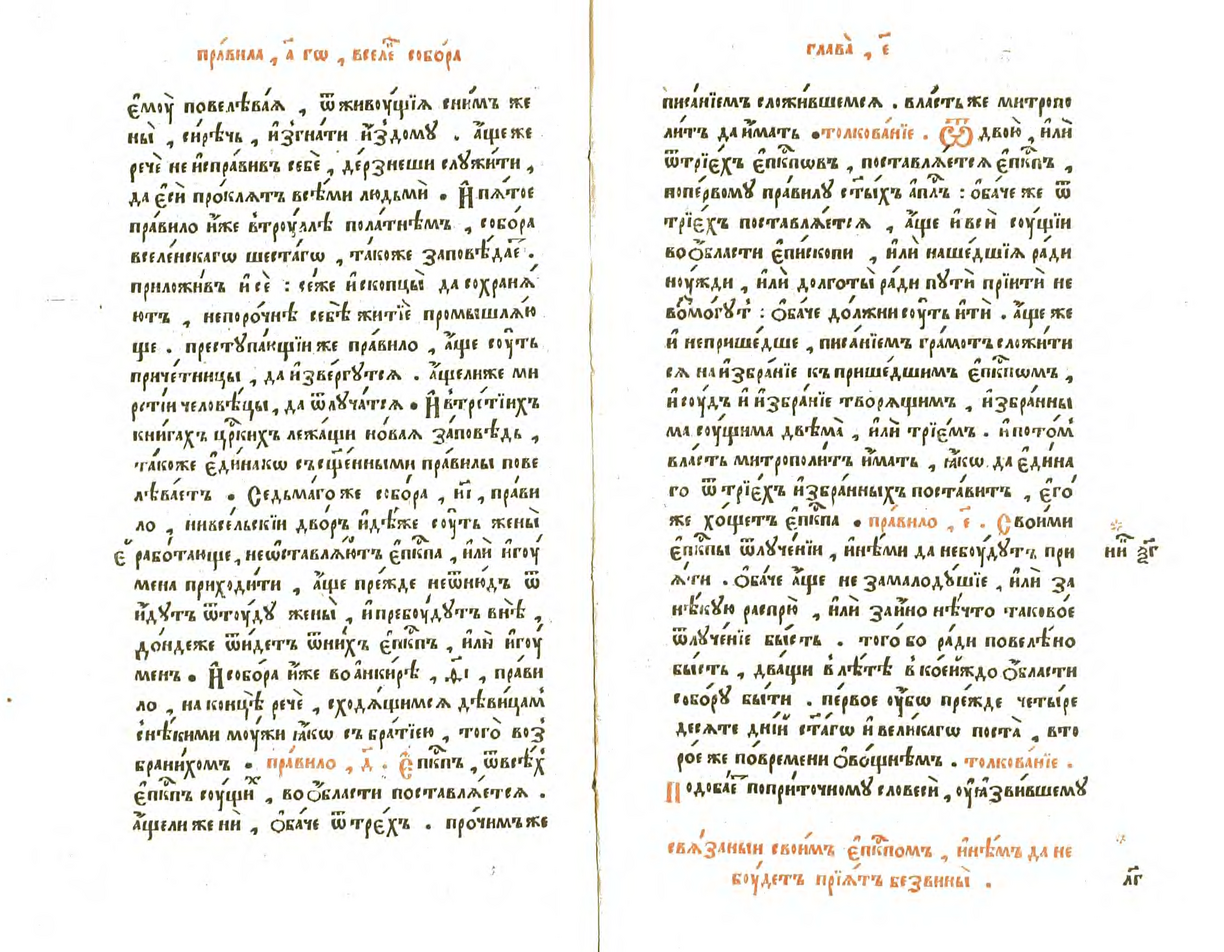 пра́вила , а҃ гѡ , вселе́⁙ собо́ра
є҆моу̀ повелѣва́ѧ , ѿ живоу́щїѧ сни́мъ же
ны̀ , си́рѣчь , и҆згна́ти и҆з̾до́мꙋ . а҆́ще же
рече̑ не и҆спра́вивъ себѐ , де́рзнеши слꙋжи́ти ,
да є҆сѝ про́клѧтъ всѣ́ми людьмѝ . И҆ пѧ́тое
пра́вило и҆́же втроу́ллѣ пола́тнѣмъ , собо́ра
вселе́нскагѡ шеста́гѡ , та́коже заповѣ́дае .
приложи́въ и҆ сѐ : се́же и҆ скопцы̀ да сохранѧ́
ютъ , непоро́чнѣ себѣ̀ житїѐ промышлѧ́ю
ще . престꙋпа́ющїи же пра́вило , а҆́ще соу́ть
приче́тницы , да и҆зве́ргꙋтсѧ . а҆́щелиже ми
рстїи человѣ́цы , да ѿлꙋча́тсѧ . И҆ втре́тїихъ
кни́гахъ цр҃кихъ лежа́щи но́ваѧ за́повѣдь ,
та́коже є҆ди́накѡ съ сщ҃е́нными пра́вилы пове
лѣва́етъ . Седьма́го же собо́ра , и҃і , пра́ви
ло , ни в се́льскїи дво́ръ и҆дѣ́же соу́ть жены̀
є҆ рабо́тающе , не ѡ҆ставлѧ́ютъ є҆пк҃па , и҆лѝ и҆гоу́
мена приходи́ти , а҆́ще пре́жде не ѿню́дъ ѿ
и҆́дꙋтъ ѿтоу́дꙋ жены̀ , и҆ пребоу́дꙋтъ внѣ̀ ,
до́ндеже ѿи́детъ ѿни́хъ є҆пк҃пъ , и҆лѝ и҆гоу́
менъ . И҆ собо́ра и҆́же во а҆нки́рѣ , ѳ҃і , пра́ви
ло , на концѣ̀ речѐ , сходѧ́щимсѧ дѣви́цам
снѣ́кими моу́жи ꙗ҆́кѡ съ бра́тїею , того̀ воз
брани́хомъ . пра́вило , д҃ . Є҆пк҃пъ , ѿ всѣ́х
є҆пк҃пъ соу́щих , во о҆́бласти поставлѧ́етсѧ .
а҆́щели же нѝ , о҆ба́че ѿ тре́хъ . про́чимъ же
глава̀ , є҃
писа́нїемъ сложи́вшемсѧ . вла́сть же митропо
ли́тъ да и҆́мать . толкова́нїе . Ѿ двою̀ , и҆лѝ
ѿ трїе́хъ є҆пк҃пѡвъ , поставлѧ́етсѧ є҆пк҃пъ ,
по пе́рвомꙋ пра́вилꙋ ст҃ы́хъ а҆пл҃ъ : о҆ба́че же ѿ
трїе́хъ поставлѧ́етсѧ , а҆́ще и҆ всѝ соу́щїи
во о҆́бласти є҆пи́скопи , и҆лѝ наше́дшїѧ ра́ди
ноу́жди , и҆лѝ долготы̀ ра́ди пꙋтѝ прїитѝ не
возмо́гꙋт : о҆ба́че до́лжни соу́ть и҆тѝ . а҆́ще же
и҆ неприше́дше , писа́нїемъ гра́мотъ сложи́ти
сѧ на и҆збра́нїе къ прише́дшимъ є҆пк҃пѡмъ ,
и҆ соу́дъ и҆ и҆збра́нїе творѧ́щимъ , и҆збра́нны
ма соу́щима двѣма̀ , и҆лѝ трїе́мъ . и҆ пото́м
вла́сть митрополи́тъ и҆́мать , ꙗ҆́кѡ да є҆ди́на
го ѿ трїе́хъ и҆збра́нныхъ поста́витъ , є҆го́
же хо́щетъ є҆пк҃па . пра́вило , є҃ . Свои́ми
є҆пк҃пы ѿлꙋче́нїи , и҆нѣ́ми да небоу́дꙋтъ при
ѧ́ти . О҆ба́че а҆́ще не за малодꙋ́шїе , и҆лѝ за
нѣ́кꙋю ра́спрю , и҆лѝ за и҆́но нѣ́что таково́е
ѿлꙋче́нїе бы́сть . того̀ бо ра́ди повелѣ́но
бы́сть , два́щи в лѣ́тѣ в кое́йждо о҆́бласти
собо́рꙋ бы́ти . пе́рвое оу҆́бѡ пре́жде четы́ре
десѧ́те дні́й ст҃а́гѡ и҆ вели́кагѡ поста̀ , вто
ро́е же повре́мени о҆во́щнѣмъ . толкова́нїе .
Подоба́е поприто́чномꙋ словесѝ , оу҆ꙗ҆зви́вшемꙋ
свѧ́заныи свои́мъ є҆пк҃помъ , и҆нѣ́мъ да не
боу́детъ прїѧ́тъ безвины̀ .
л҃г